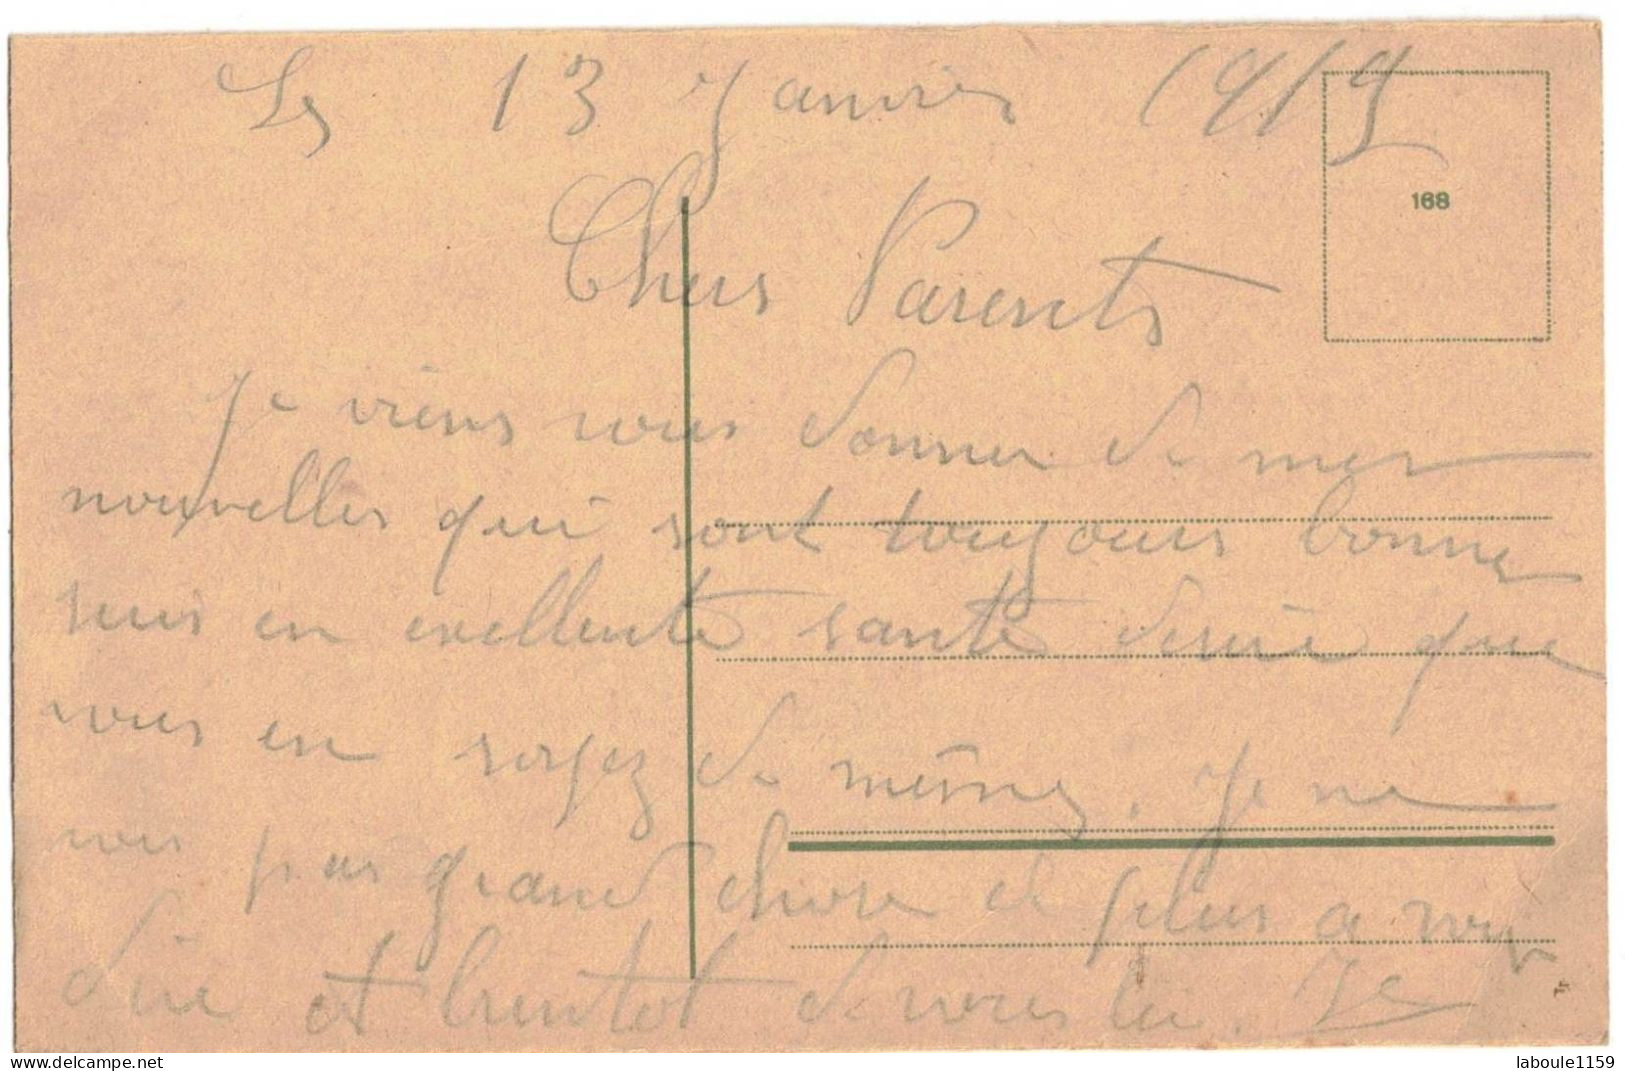 Le 13 Janvier 1919
168
Chers Parents
Je viens vous donner de mes
nouvelles qui sont toujours bonne
suis en exellente santé desire que
vous en soyez de même. Je ne
vois pas grand chose de plus a vous
dire et bientot de vous lire. Je
www.delcampe.net
laboule1159